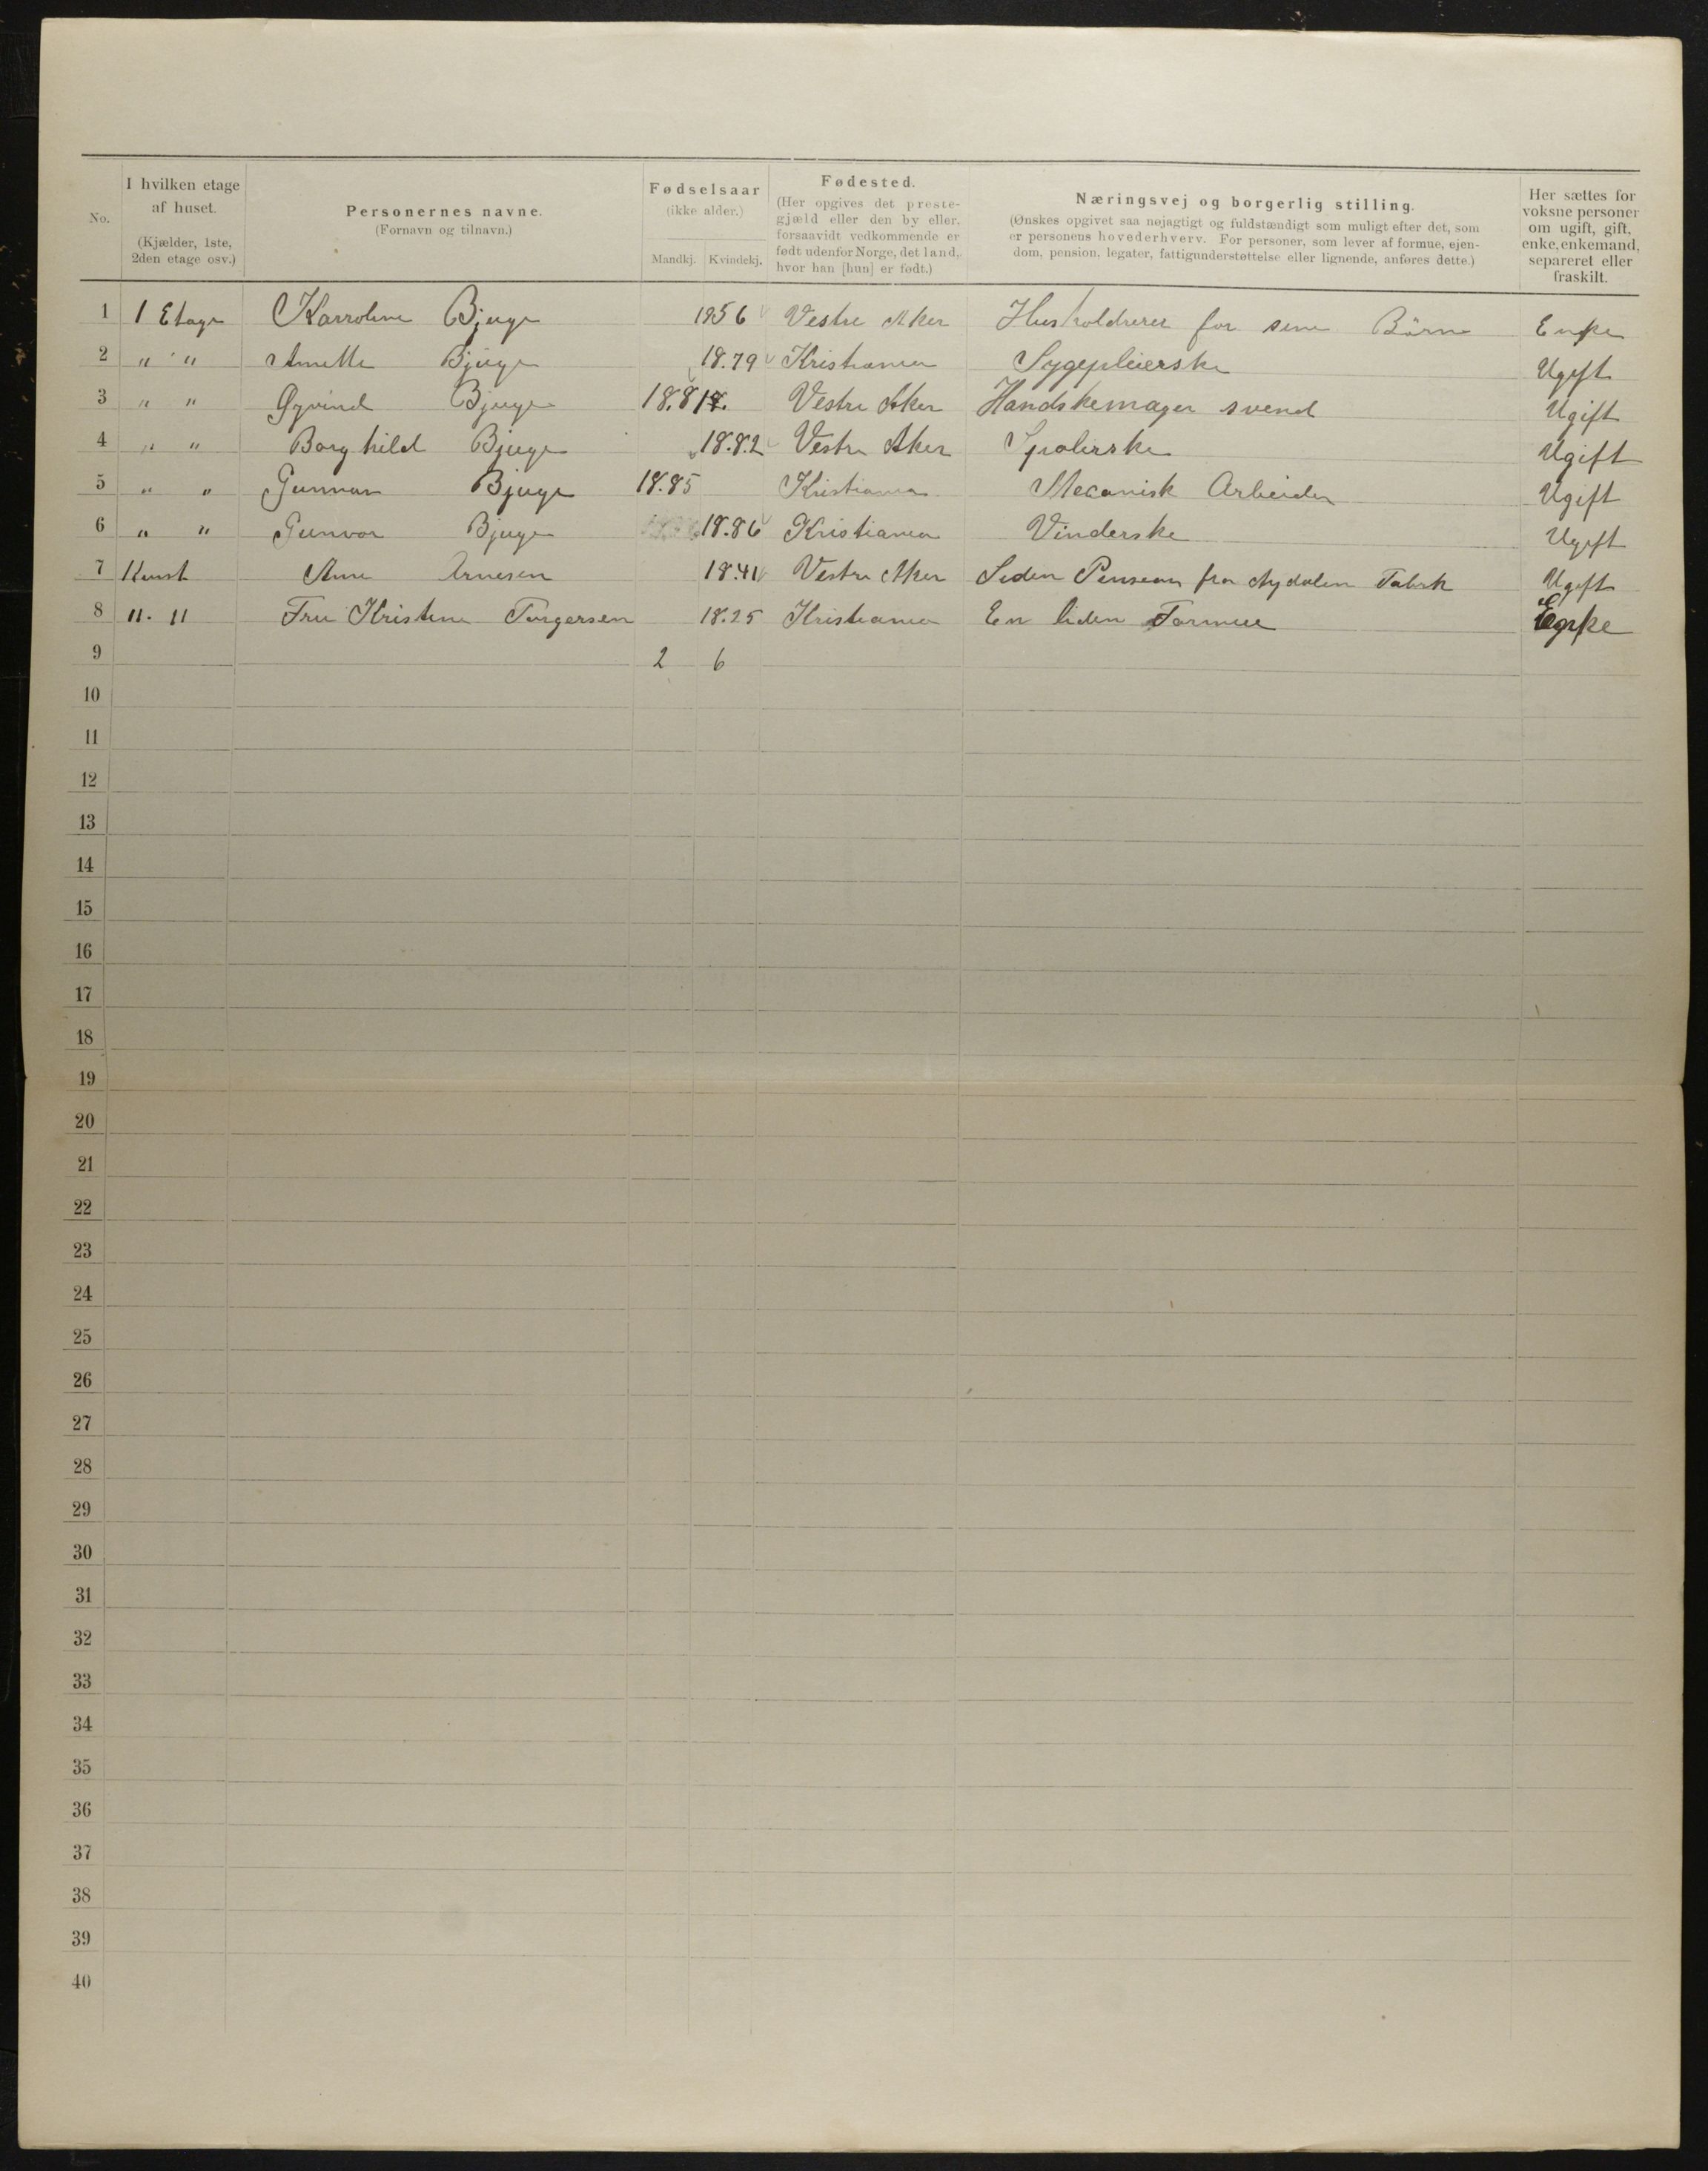 No.
I hvilken etage af huset.
(Kjælder, 1ste, 2den etage osv.)
Personernes navne.
(Fornavn og tilnavn.)
Fødselsaar
(ikke alder.)
Mandkj. Kvindekj.
Fødested.
(Her opgives det preste-
gjæld eller den by eller,
forsaavidt vedkommende er
født udenfor Norge, det land,
hvor han [hun] er født.)
Næringsvej og borgerlig stilling.
(Ønskes opgivet saa nøjagtigt og fuldstændigt som muligt efter det, som
er personens hovederhverv. For personer, som lever af formue, ejen-
dom, pension, legater, fattigunderstøttelse eller lignende, anføres dette.)
Her sættes for
voksne personer
om ugift, gift,
enke, enkemand,
separeret eller
fraskilt.
1 1 Etage Karroline Bjuge 1856 Vestre Aker Husholdrerer for sine Börn Enke
2 " " Anette Bjuge 18.79 Kristiania Sygepleierske Ugift
3 " " Øyvind Bjuge 18.81 Vestre Aker Handskemager svend Ugift
4 " " Borghild Bjuge 18.82 Vestre Aker Spolerske Ugift
5 " " Gunnar Bjuge 18.85 Kristiania Mecanisk Arbeider Ugift
6 " " Gunvor Bjuge 18.86 Kristiania Vinderske Ugift
7 Kvist Ane Arnesen 18.41 Vestre Aker Liden Penseon fra Nydalen Fabrk Ugift
8 11. 11 Fru Kristine Torgersen 18.25 Kristiania En liden Formue Enke
9 2 6
10
11
12
13
14
15
16
17
18
19
20
21
22
23
24
25
26
27
28
29
30
31
32
33
34
35
36
37
38
39
40